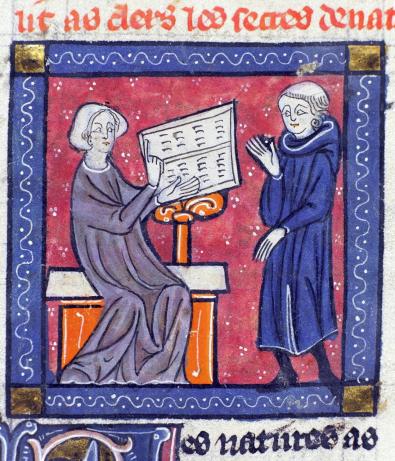 as clers les sectes denat
es natures as